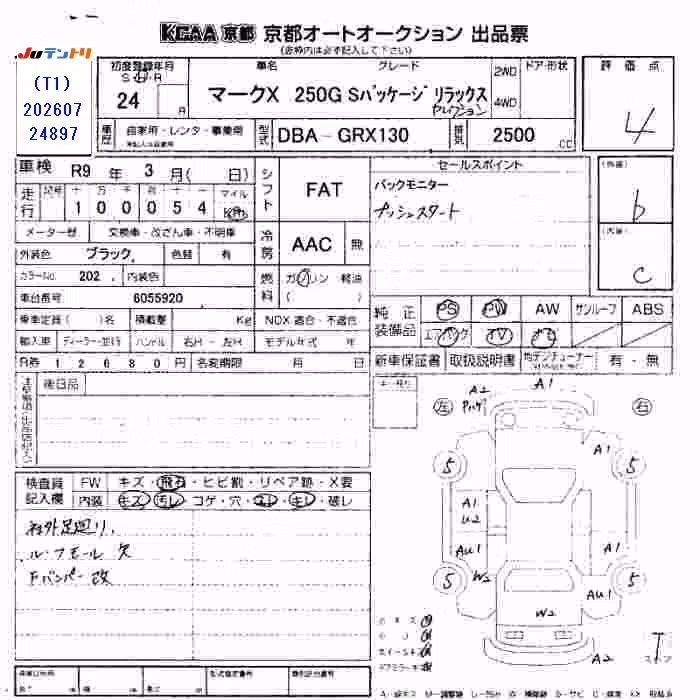 KCAA 京都 京都オートオークション 出品票
(赤枠内は必ず記入して下さい)
JUテントリ
(T1)
202607
24897
初度登録年月
S H R
24 月
車名 グレード
マークX 250G Sパッケージ リラックス
セレクション
2WD
4WD
ドア・形状
評価点
4
車歴
自家用・レンタ・事業用
型式
DBA-GRX130
排気
2500
CC
車検 R9 年 3 月( 日)
シフト
FAT
セールスポイント
バックモニター
プッシュスタート
(外装)
b
(内装)
C
走行
十 万 千 百 十 一
100054
マイル
Km
メーター歴 交換車・改ざん車・不明車
冷房
AAC 無
外装色 ブラック 色替 有
カラーNo. 202 内装色
燃料
ガソリン 軽油
( )
車台番号 6055920
乗車定員( )名 積載量 Kg NOX 適合・不適合
輸入車 ディーラー・並行 ハンドル 右H・左H モデル年式 年
純正装備品
PS PW AW サンルーフ ABS
エアバッグ TV ナビ
R券 12680円 名変期限 月 日
新車保証書 取扱説明書 地デジチューナー 有・無
後日品
検査員記入欄
FW キズ・飛石・ヒビ割・リペア跡・X要
内装 キズ・汚レ・コゲ・穴・スレ・キレ・破レ
社外足廻り、
ルーフモール 欠
Fバンパー 改
左 右
A2 A1
A1
5 5
A1
U2
AU1
A1
5 5
W2
AU1
W2
A2